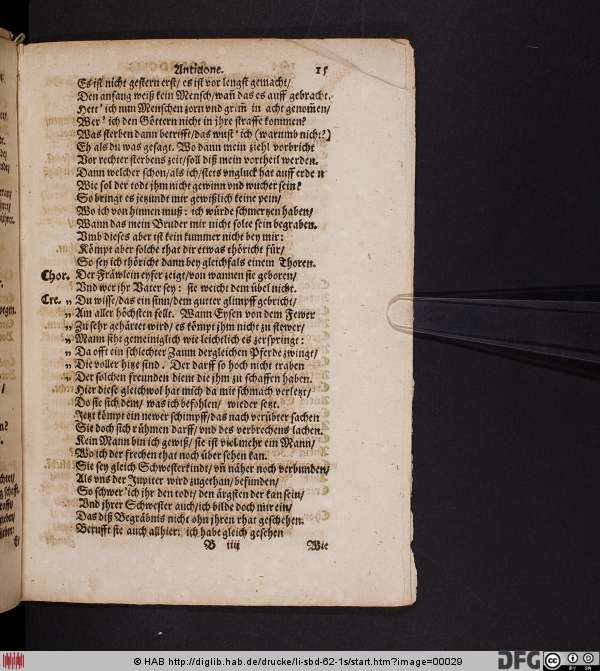 Antigone. 15
Es ist nicht gestern erst/ es ist vor lengst gemacht/
Den anfang weiß kein Mensch/ wañ das es auff gebracht.
Hett' ich nun Menschen zorn vnd grim̃ in acht genom̃en/
Wer' ich den Göttern nicht in jhre straffe kommen?
Was sterben dann betrifft/ das wust' ich (warumb nicht?)
Eh als du was gesagt. Wo dann mein ziehl vorbricht
Vor rechter sterbens zeit/ soll diß mein vortheil werden.
Dann welcher schon/ als ich/ stets vngluck hat auff erde n
Wie sol der todt jhm nicht gewinn vnd wucher sein?
So bringt es jetzundt mir gewißlich keine pein/
Wo ich von hinnen muß: ich würde schmertzen haben/
Wann das mein Bruder mir nicht solte sein begraben.
Vmb dieses aber ist kein kummer nicht bey mir:
Kömpt aber solche that dir etwas thöricht für/
So sey ich thöricht dann bey gleichfals einem Thoren.
Chor. Der Fräwlein eyfer zeigt/ von wannen sie geboren/
Vnd wer jhr Vater sey: sie weicht dem übel nicht.
Cre. „ Du wisse/ das ein sinn/ dem gutter glimpff gebricht/
„ Am aller höchsten fellt. Wann Eysen von dem Fewer
„ Zu sehr gehärtet wird/ es kömpt jhm nicht zu stewer/
„ Mann siht gemeiniglich wie leichtlich es zerspringt:
„ Da offt ein schlechter Zaum dergleichen Pferde zwingt/
„ Die voller hitze sind. Der darff so hoch nicht traben
„ Der solchen freunden dient die jhm zu schaffen haben.
Hier diese gleichwol hat mich da mit schmach verletzt/
Do sie sich dem/ was ich befohlen/ wieder setzt.
Jetzt kömpt ein newer schimpff/ das nach verübter sachen
Sie doch sich rühmen darff/ vnd des verbrechens lachen.
Kein Mann bin ich gewiß/ sie ist viel mehr ein Mann/
Wo ich der frechen that noch über sehen kan.
Sie sey gleich Schwesterkindt/ vñ näher noch verbunden/
Als vns der Jupiter wird zugethan/ befunden/
So schwer' ich jhr den todt/ den ärgsten der kan sein/
Vnd jhrer Schwester auch/ ich bilde doch mir ein/
Das diß Begräbnis nicht ohn jhren rhat geschehen.
Berufft sie auch allhier: ich habe gleich gesehen
B iiij Wie
© HAB http://diglib.hab.de/drucke/li-sbd-62-1s/start.htm?image=00029
DFG